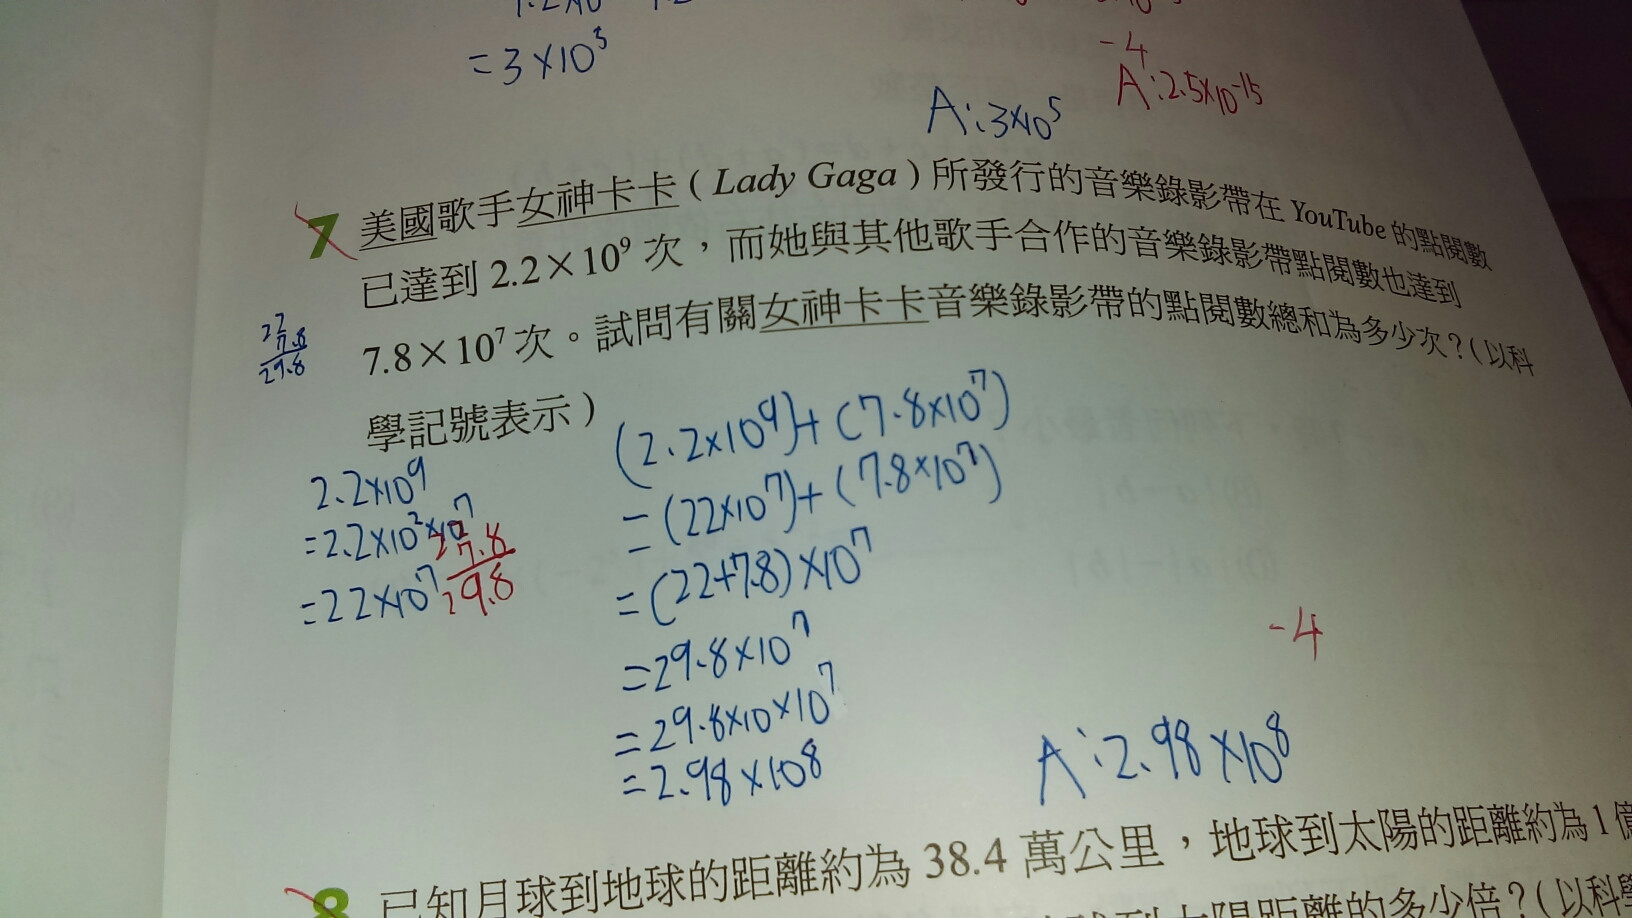 =3×10⁵
-4
A:3×10⁵
A:2.5×10⁻¹⁵
7 美國歌手女神卡卡(Lady Gaga)所發行的音樂錄影帶在YouTube的點閱數
已達到2.2×10⁹次,而她與其他歌手合作的音樂錄影帶點閱數也達到
7.8×10⁷次。試問有關女神卡卡音樂錄影帶的點閱數總和為多少次?(以科
學記號表示)
22
7.8
29.8
2.2×10⁹
=2.2×10²×10⁷
=22×10⁷
22
7.8
29.8
(2.2×10⁹)+(7.8×10⁷)
=(22×10⁷)+(7.8×10⁷)
=(22+7.8)×10⁷
=29.8×10⁷
=29.8×10×10⁷
=2.98×10⁸
-4
A:2.98×10⁸
8 已知月球到地球的距離約為38.4萬公里,地球到太陽的距離約為1億
太陽距離的多少倍?(以科學